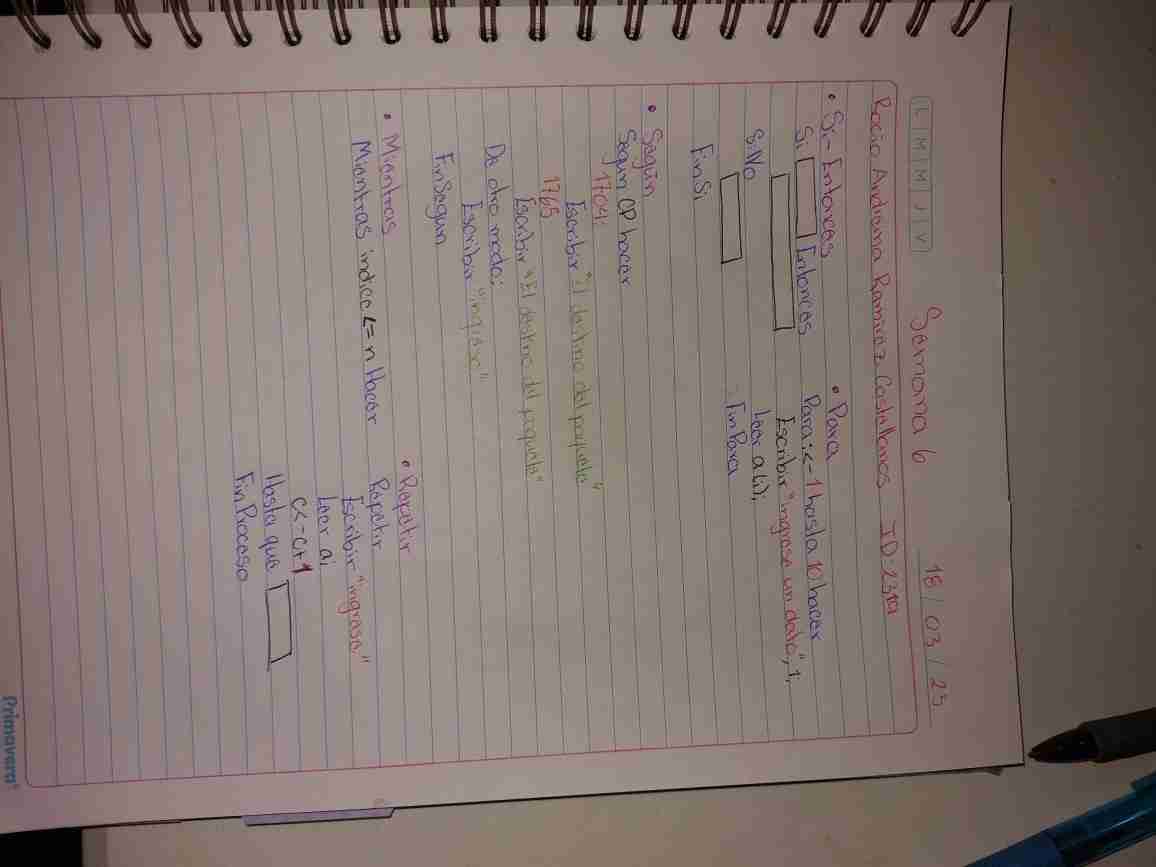 L M M J V
Semana 6
18 / 03 / 25
Rocio Andrea Ramirez Castellanos ID:
• Si - Entonces
Si Entonces
SiNo
FinSi
• Para
Para i <- 1 hasta 10 hacer
Escribir "ingrese un dato", 1;
Leer a(i);
FinPara
• Según
Segun CP hacer
1704:
Escribir "El destino del paquete"
1765
Escribir "El destino del paquete"
De otro modo:
Escribir "ingrese"
FinSegun
• Mientras
Mientras indice <= n Hacer
• Repetir
Repetir
Escribir "ingrese"
Leer a;
c<-c+1
Hasta que
FinProceso
Primavera